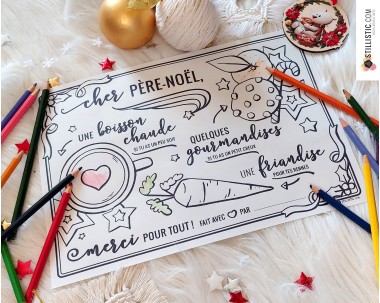 STILLISTIC.COM
cher PÈRE-NOËL,
UNE boisson
chaude
SI TU AS UN PEU SOIF
QUELQUES
gourmandises
SI TU AS UN PETIT CREUX
UNE friandise
POUR TES RENNES
merci POUR TOUT !
FAIT AVEC
PAR